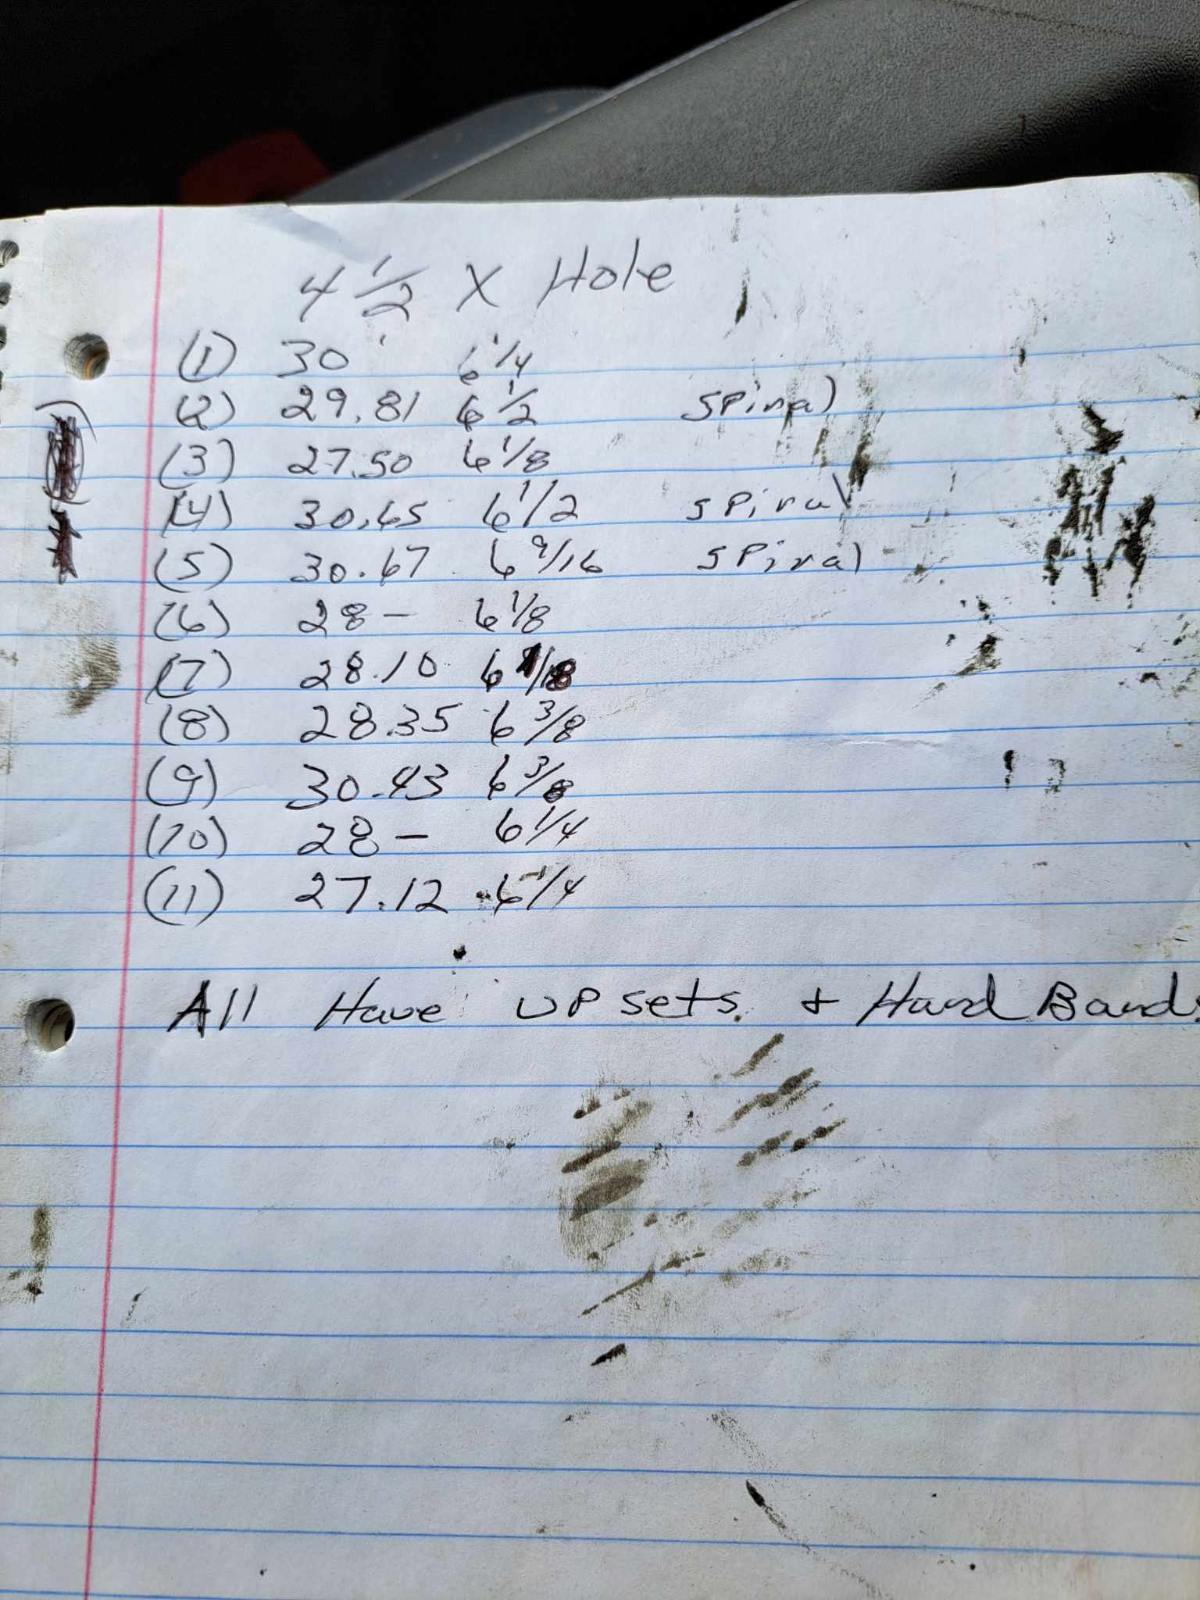 4 1/2 X Hole
(1) 30' 6 1/4
(2) 29.81 6 1/2 spiral
(3) 27.50 6 1/8
(4) 30.65 6 1/2 spiral
(5) 30.67 6 9/16 spiral
(6) 28 - 6 1/8
(7) 28.10 6
(8) 28.35 6 3/8
(9) 30.43 6 3/8
(10) 28 - 6 1/4
(11) 27.12 6 1/4
All Have upsets + Hard Bands